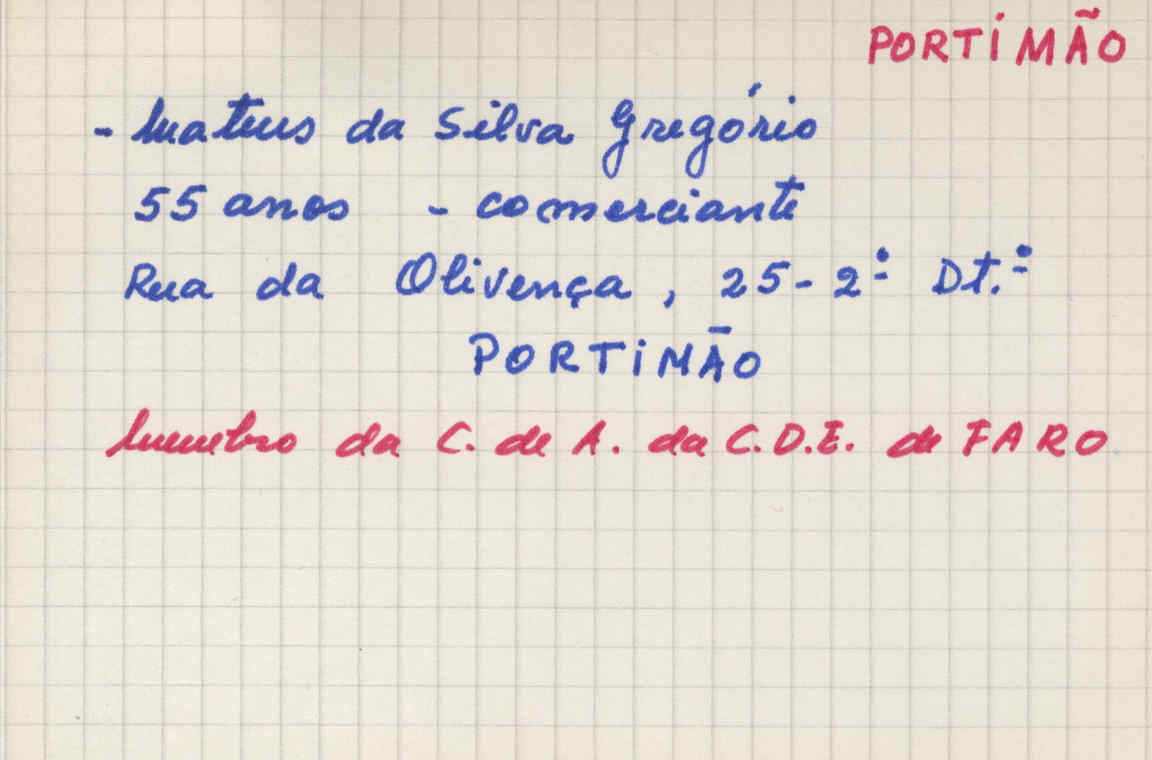 PORTIMÃO
- Mateus da Silva Gregório
55 anos - comerciante
Rua da Olivença, 25-2º Dt.º
PORTIMÃO
Membro da C. de A. da C.D.E. de FARO